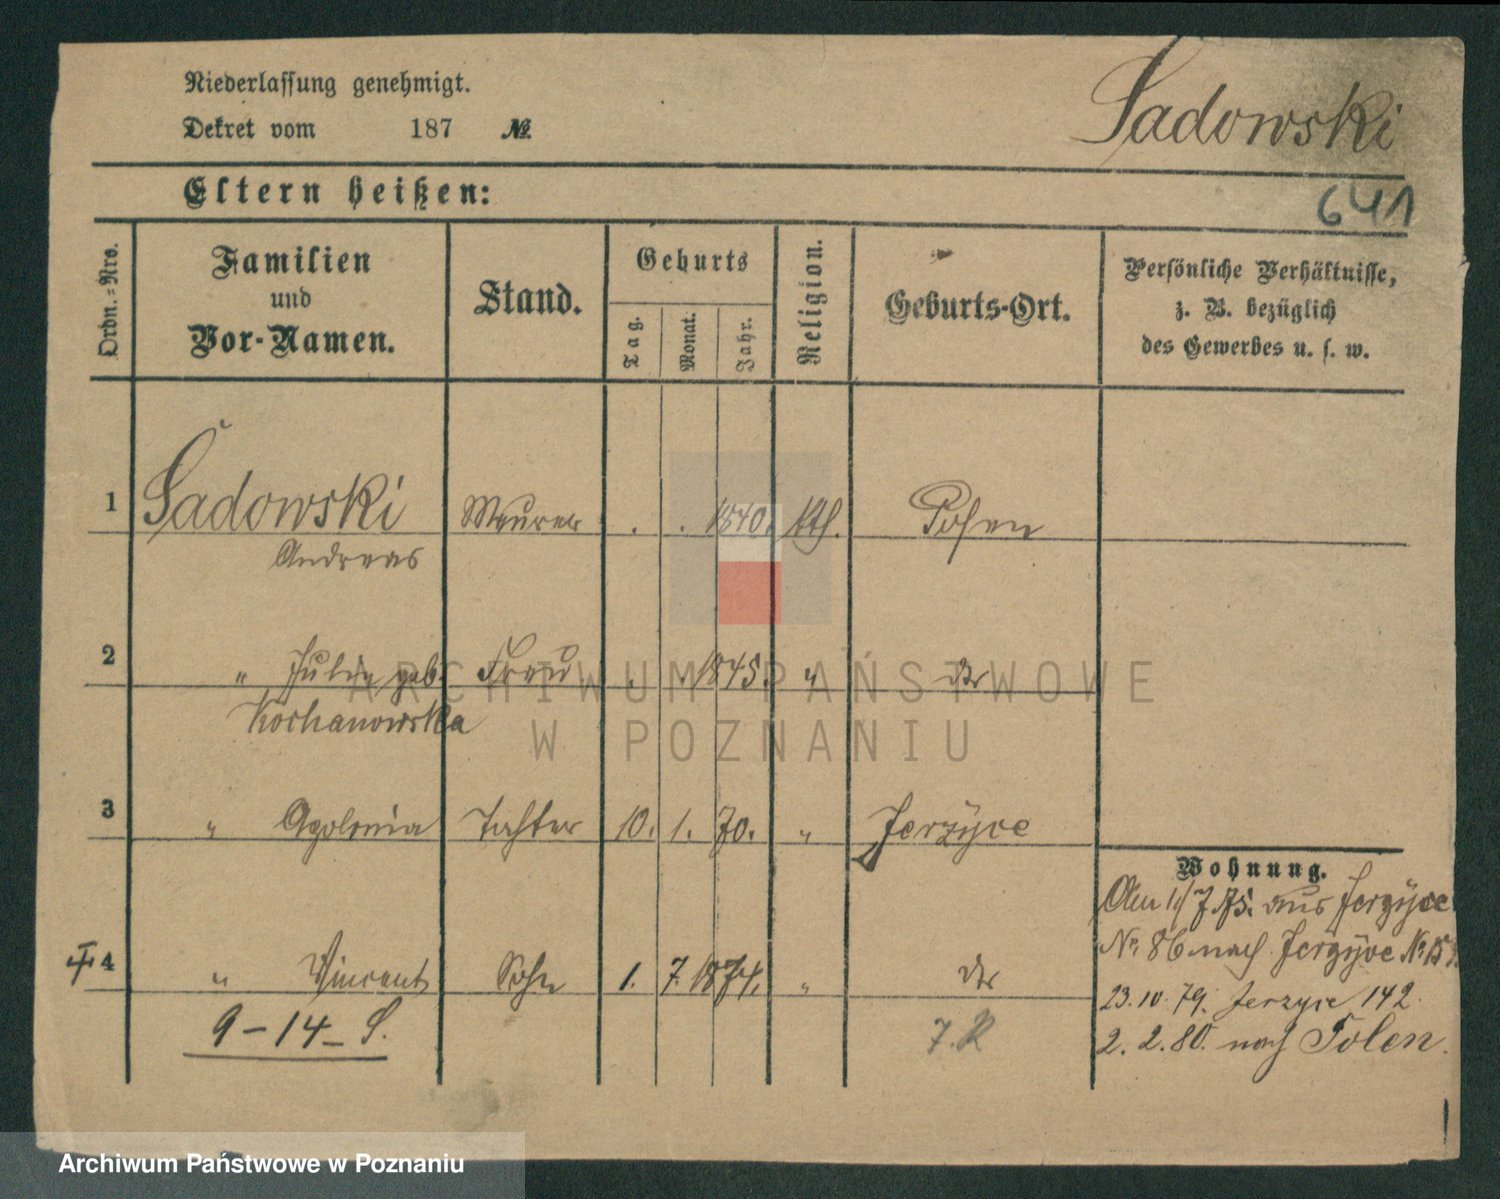 Niederlassung genehmigt.
Dekret vom 187 №
Sadowski
641
Eltern heißen:
Ordn.-Nro.
Familien
und
Vor-Namen.
Stand.
Geburts
Tag.
Monat.
Jahr.
Religion.
Geburts-Ort.
Persönliche Verhältnisse,
z. B. bezüglich
des Gewerbes u. s. w.
1 Sadowski Maurer . . 1840. kth. Posen
Andreas
2 " Julia geb. Frau . . 1845. " do
Kochanowska
3 " Apolonia Tochter 10. 1. 70. " Jerzyce
Wohnung.
Am 1/7.75. aus Jerzyce
No. 86 nach Jerzyce No.
4 " Vincent Sohn 1. 7. 1874. " do
23.10.79. Jerzyce 142.
9-14- S.
7. R
2. 2. 80. nach Polen.
ARCHIWUM PAŃSTWOWE
W POZNANIU
Archiwum Państwowe w Poznaniu